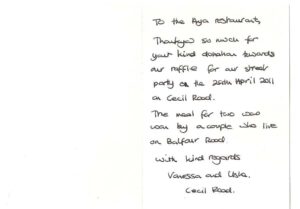 To the Aya restaurant,
Thankyou so much for
your kind donation towards
our raffle for our street
party on the 25th April 2011
on Cecil Road.
The meal for two was
won by a couple who live
on Balfour Road
With kind regards
Vanessa and
Cecil Road.